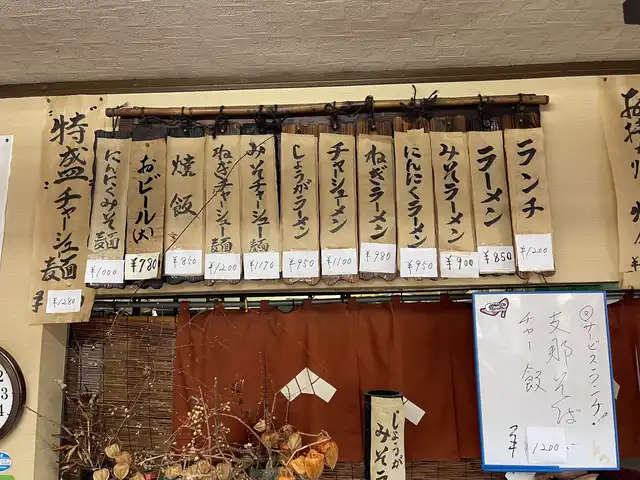 ランチ
¥1200
ラーメン
¥850
みそラーメン
¥900
にんにくラーメン
¥950
ねぎラーメン
¥980
チャーシューメン
¥1100
しょうがラーメン
¥950
みそチャーシュー麺
¥1170
ねぎチャーシュー麺
¥1200
焼飯
¥850
おビール(大)
¥780
にんにくみそ麺
¥1000
特盛チャーシュー麺
¥1280
サービスランチ!
支那そば
チャー飯
¥1200-
しょうが
みそラ
3
4